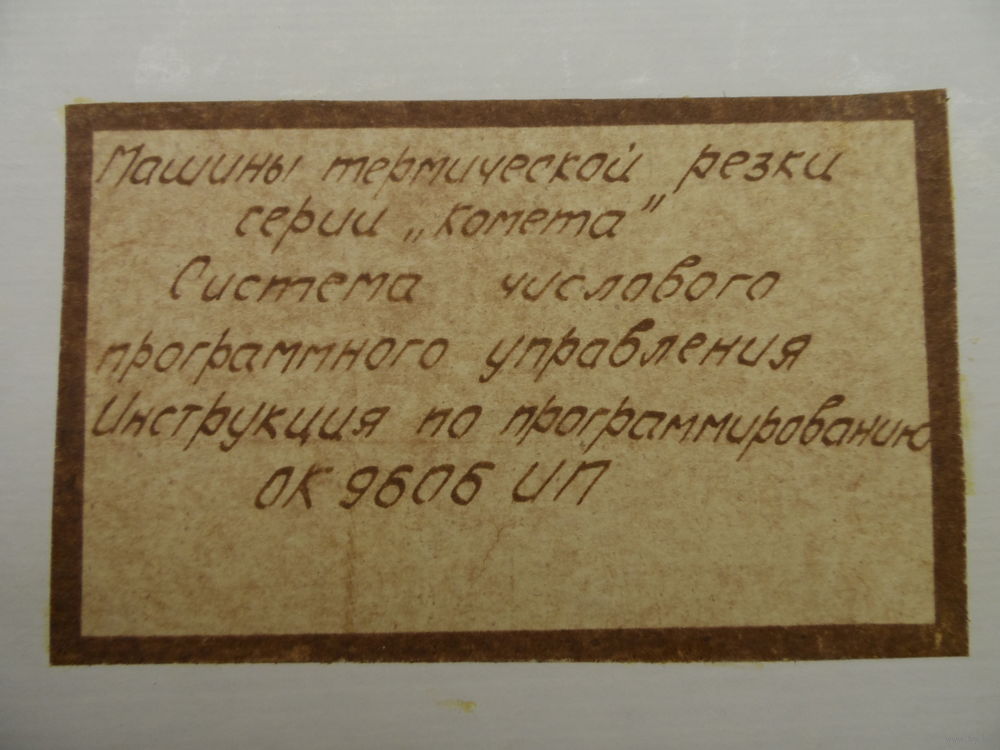 Машины термической резки
серии „Комета”
Система числового
программного управления
Инструкция по программированию
ОК 9606 ИП